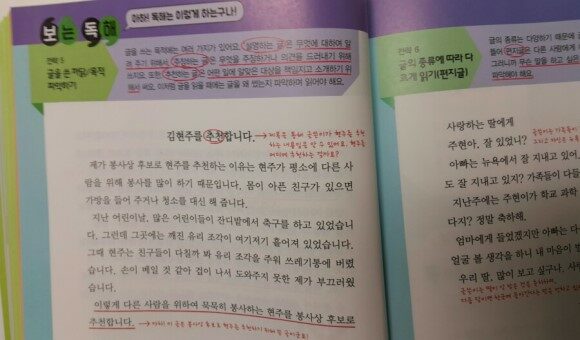 보는 독해
아하! 독해는 이렇게 하는구나!
전략 5
글을 쓴 까닭/목적
파악하기
글을 쓰는 목적에는 여러 가지가 있어요. 설명하는 글은 무엇에 대하여 알
려 주기 위해서, 주장하는 글은 무엇을 주장하거나 의견을 드러내기 위해
쓰지요. 또한 추천하는 글은 어떤 일에 알맞은 대상을 책임지고 소개하기 위
해서 써요. 이처럼 글을 읽을 때에는 글을 왜 썼는지 파악하며 읽어야 해요.
김현주를 추천합니다.
제목을 통해 글쓴이가 현주를 추천
하는 내용임을 알 수 있어요. 현주를
어디에 추천하는 걸까요?
제가 봉사상 후보로 현주를 추천하는 이유는 현주가 평소에 다른 사
람을 위해 봉사를 많이 하기 때문입니다. 몸이 아픈 친구가 있으면
가방을 들어 주거나 청소를 대신 해 줍니다.
지난 어린이날, 많은 어린이들이 잔디밭에서 축구를 하고 있었습니
다. 그런데 그곳에는 깨진 유리 조각이 여기저기 흩어져 있었습니다.
그때 현주는 친구들이 다칠까 봐 유리 조각을 주워 쓰레기통에 버렸
습니다. 손이 베일 것 같아 겁이 나서 도와주지 못한 제가 부끄러웠
습니다.
이렇게 다른 사람을 위하여 묵묵히 봉사하는 현주를 봉사상 후보로
추천합니다.
전략 6
글의 종류에 따라 다
르게 읽기(편지글)
글의 종류는 다양하기 때문에
들어 편지글은 다른 사람에게
그러니까 무슨 말을 하고 싶은
파악해야 해요.
사랑하는 딸에게
주현아, 잘 있었니?
아빠는 뉴욕에서 잘 지내고 있어
도 잘 지내고 있지? 가족들이 다들
지난주에는 주현이가 학교 과학
다지? 정말 축하해.
엄마에게 들었겠지만 아빠는 다
얼굴 볼 생각을 하니 내 마음이
우리 딸, 많이 보고 싶구나.